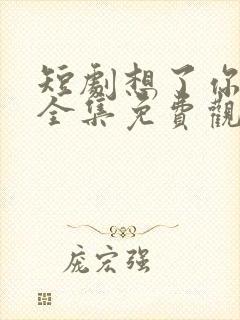 短劇想了你
全集免費觀
庞宏强